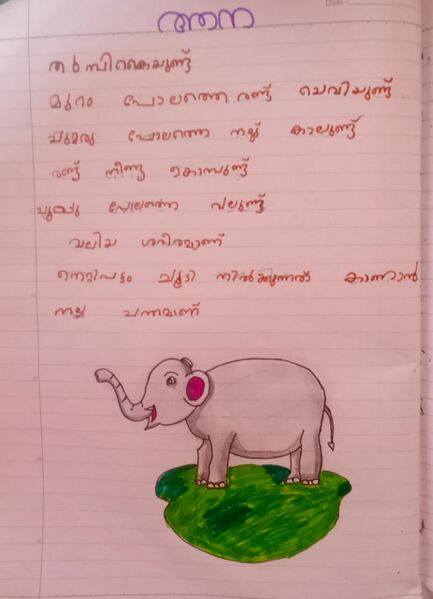 ആന
തുമ്പികൈയുണ്ട്
മുറം പോലത്തെ രണ്ട് ചെവിയുണ്ട്
ചുമരു പോലത്തെ നാല് കാലുണ്ട്
രണ്ട് നീണ്ട കൊമ്പുണ്ട്
ചൂല് പോലത്തെ വാലുണ്ട്
വലിയ ശരീരമാണ്
നെറ്റിപട്ടം ചൂടി നിൽക്കുന്നത് കാണാൻ
നല്ല ചന്തമാണ്